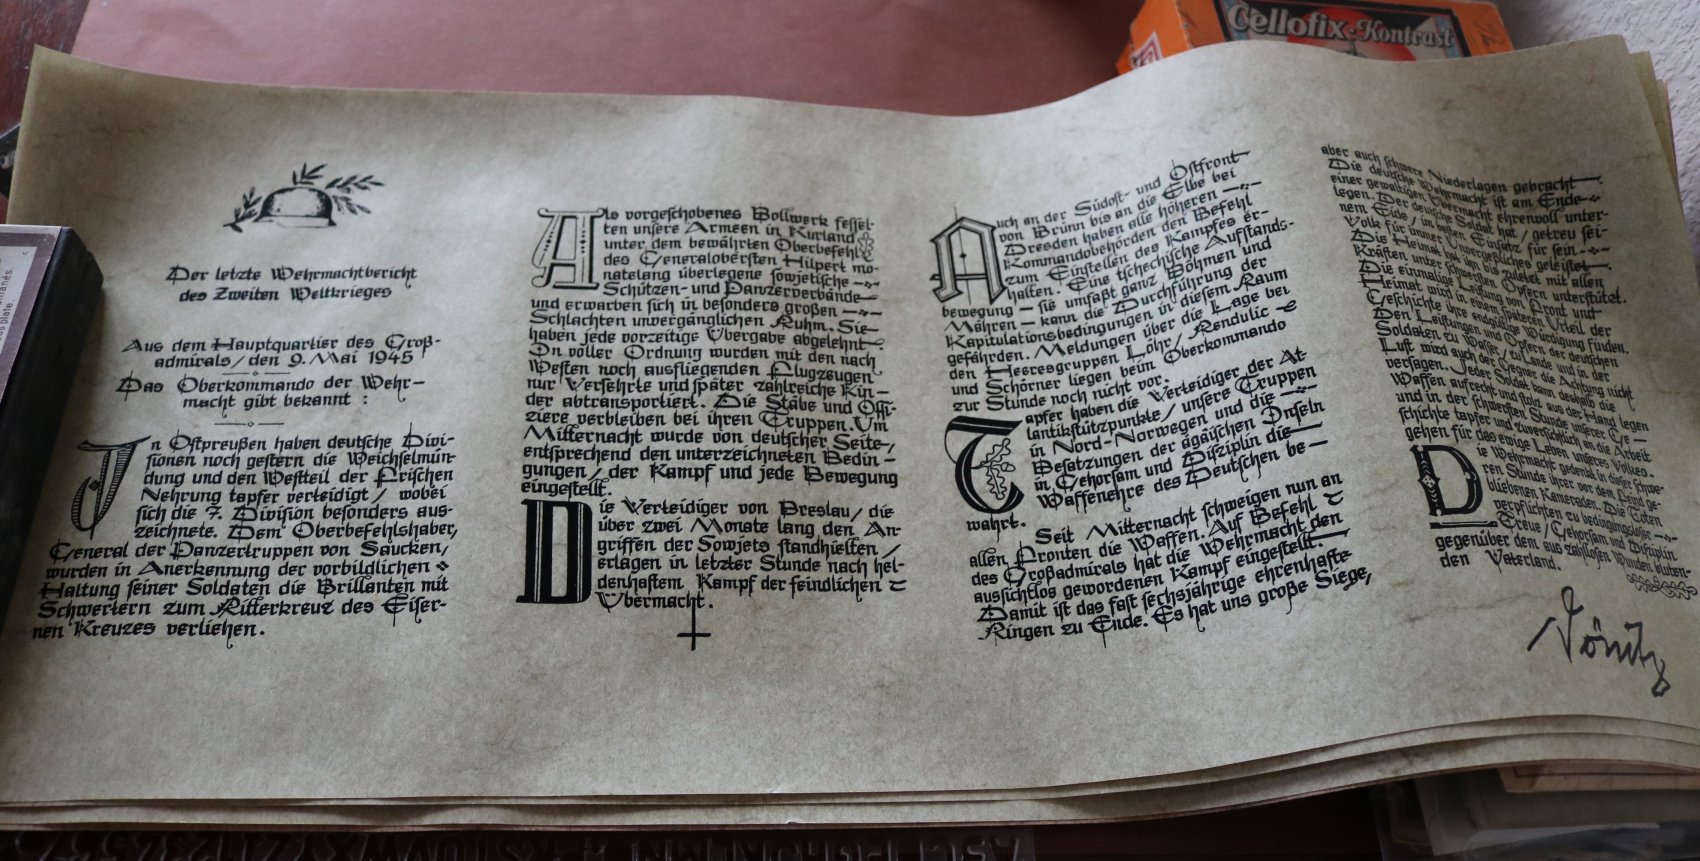 Cellofix-Kontrast
Der letzte Wehrmachtbericht
des Zweiten Weltkrieges
Aus dem Hauptquartier des Groß-
admirals, den 9. Mai 1945
Das Oberkommando der Wehr-
macht gibt bekannt :
In Ostpreußen haben deutsche Divi-
sionen noch gestern die Weichselmün-
dung und den Westteil der Frischen
Nehrung tapfer verteidigt, wobei
sich die 7. Division besonders aus-
zeichnete. Dem Oberbefehlshaber,
General der Panzertruppen von Saucken,
wurden in Anerkennung der vorbildlichen
Haltung seiner Soldaten die Brillanten mit
Schwertern zum Ritterkreuz des Eiser-
nen Kreuzes verliehen.
Als vorgeschobenes Bollwerk fessel-
ten unsere Armeen in Kurland
unter dem bewährten Oberbefehl
des Generalobersten Hilpert mo-
natelang überlegene sowjetische
Schützen- und Panzerverbände
und erwarben sich in besonders großen
Schlachten unvergänglichen Ruhm. Sie
haben jede vorzeitige Übergabe abgelehnt.
In voller Ordnung wurden mit den nach
Westen noch ausfliegenden Flugzeugen
nur Versehrte und später zahlreiche Kin-
der abtransportiert. Die Stäbe und Offi-
ziere verbleiben bei ihren Truppen. Um
Mitternacht wurde von deutscher Seite,
entsprechend den unterzeichneten Bedin-
gungen, der Kampf und jede Bewegung
eingestellt.
Die Verteidiger von Breslau, die
über zwei Monate lang den An-
griffen der Sowjets standhielten,
erlagen in letzter Stunde nach hel-
denhaftem Kampf der feindlichen
Übermacht.
Auch an der Südost- und Ostfront
von Brünn bis an die Elbe bei
Dresden haben alle höheren
Kommandobehörden den Befehl
zum Einstellen des Kampfes er-
halten. Eine tschechische Aufstands-
bewegung – sie umfaßt ganz Böhmen und
Mähren – kann die Durchführung der
Kapitulationsbedingungen in diesem Raum
gefährden. Meldungen über die Lage bei
den Heeresgruppen Löhr, Rendulic
und Schörner liegen beim Oberkommando
zur Stunde noch nicht vor.
Tapfer haben die Verteidiger der At-
lantikstützpunkte, unsere Truppen
in Nord-Norwegen und die
Besatzungen der ägäischen Inseln
in Gehorsam und Disziplin die
Waffenehre des Deutschen be-
wahrt.
Seit Mitternacht schweigen nun an
allen Fronten die Waffen. Auf Befehl
des Großadmirals hat die Wehrmacht den
aussichtlos gewordenen Kampf eingestellt.
Damit ist das fast sechsjährige ehrenhafte
Ringen zu Ende. Es hat uns große Siege,
aber auch schwere Niederlagen gebracht.
Die deutsche Wehrmacht ist am Ende
einer gewaltigen Übermacht ehrenvoll unter-
legen. Der deutsche Soldat hat, getreu sei-
nem Eide, im besten Einsatz für sein
Volk für immer Unvergeßliches geleistet.
Die Heimat hat ihn bis zuletzt mit allen
Kräften unter schwersten Opfern unterstützt.
Die einmalige Leistung von Front und
Heimat wird in einem späteren Urteil der
Geschichte ihre endgültige Würdigung finden.
Den Leistungen und Opfern der deutschen
Soldaten zu Wasser, zu Lande und in der
Luft wird auch der Gegner die Achtung nicht
versagen. Jeder Soldat kann deshalb die
Waffen aufrecht und stolz aus der Hand legen
und in der schwersten Stunde unserer Ge-
schichte tapfer und zuversichtlich an die Arbeit
gehen für das ewige Leben unseres Volkes.
Die Wehrmacht gedenkt in dieser schwe-
ren Stunde ihrer vor dem Feind ge-
bliebenen Kameraden. Die Toten
verpflichten zu bedingungsloser
Treue, Gehorsam und Disziplin
gegenüber dem aus zahllosen Wunden bluten-
den Vaterland.
Dönitz